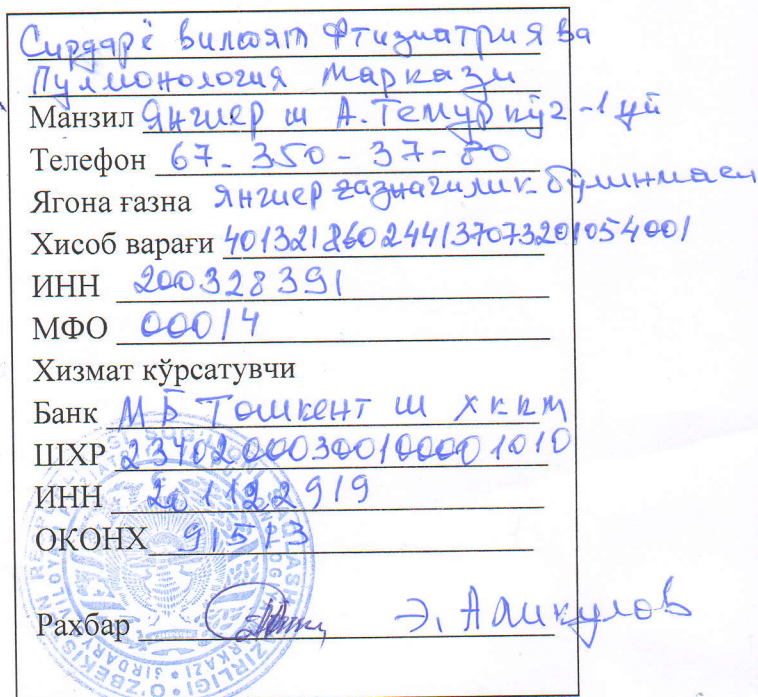 Сирдарё вилоят Фтизиатрия ва
Пулмонология маркази
Манзил Янгиер ш А.Темур кўч -1 уй
Телефон 67-350-37-80
Ягона ғазна Янгиер ғазначилик бўлинмаси
Хисоб варағи 401321860244137073201054001
ИНН 200328391
МФО 00014
Хизмат кўрсатувчи
Банк МБ Тошкент ш ХККМ
ШХР 23402000300100001010
ИНН 201122919
ОКОНХ 91513
Рахбар Э. Ашкулов